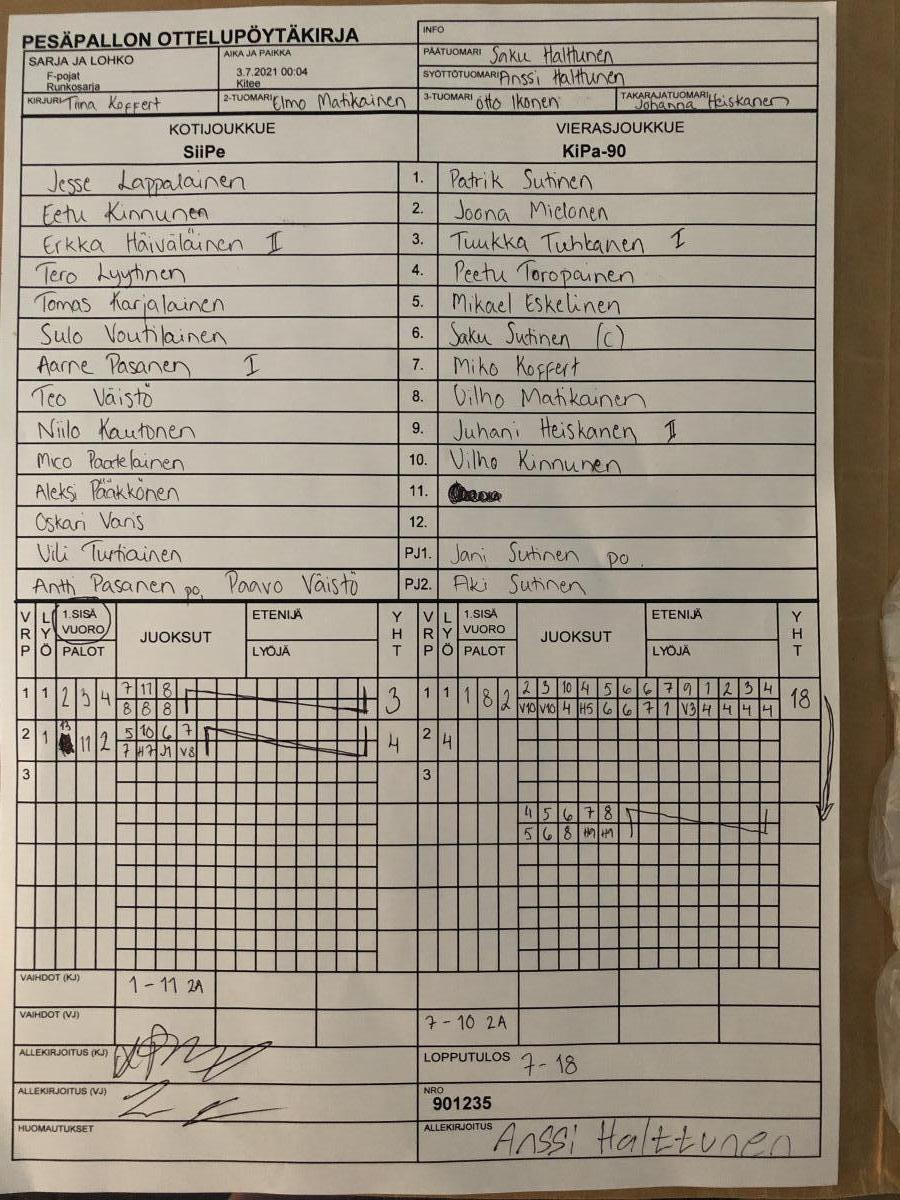 PESÄPALLON OTTELUPÖYTÄKIRJA
INFO
SARJA JA LOHKO
F-pojat
Runkosarja
AIKA JA PAIKKA
3.7.2021 00:04
Kitee
PÄÄTUOMARI Saku Halttunen
SYÖTTÖTUOMARI Anssi Halttunen
KIRJURI Tiina Koffert
2-TUOMARI Elmo Matikainen
3-TUOMARI Otto Ikonen
TAKARAJATUOMARI Johanna Heiskanen
KOTIJOUKKUE
SiiPe
VIERASJOUKKUE
KiPa-90
Jesse Lappalainen 1. Patrik Sutinen
Eetu Kinnunen 2. Joona Mielonen
Erkka Häiväläinen II 3. Tuukka Tuhkanen I
Tero Lyytinen 4. Peetu Toropainen
Tomas Karjalainen 5. Mikael Eskelinen
Sulo Voutilainen 6. Saku Sutinen (C)
Aarne Pasanen I 7. Miko Koffert
Teo Väistö 8. Vilho Matikainen
Niilo Kautonen 9. Juhani Heiskanen II
Mico Paatelainen 10. Vilho Kinnunen
Aleksi Pääkkönen 11.
Oskari Varis 12.
Vili Turtiainen PJ1. Jani Sutinen po
Antti Pasanen po, Paavo Väistö PJ2. Aki Sutinen
VRP LYÖ 1.SISÄ VUORO PALOT JUOKSUT ETENIJÄ LYÖJÄ YHT VRP LYÖ 1.SISÄ VUORO PALOT JUOKSUT ETENIJÄ LYÖJÄ YHT
1 1 2 3 4 7 11 8 3 1 1 1 8 2 2 3 10 4 5 6 6 7 9 1 2 3 4 18
8 8 8 V10 V10 4 H5 6 6 7 1 V3 4 4 4 4
2 1 13 11 2 5 10 6 7 4 2 4
7 H7 J1 V8
3 3
4 5 6 7 8
5 6 8 H9 H9
VAIHDOT (KJ) 1-11 2A
VAIHDOT (VJ) 7-10 2A
ALLEKIRJOITUS (KJ) LOPPUTULOS 7-18
ALLEKIRJOITUS (VJ) NRO
901235
HUOMAUTUKSET ALLEKIRJOITUS Anssi Halttunen